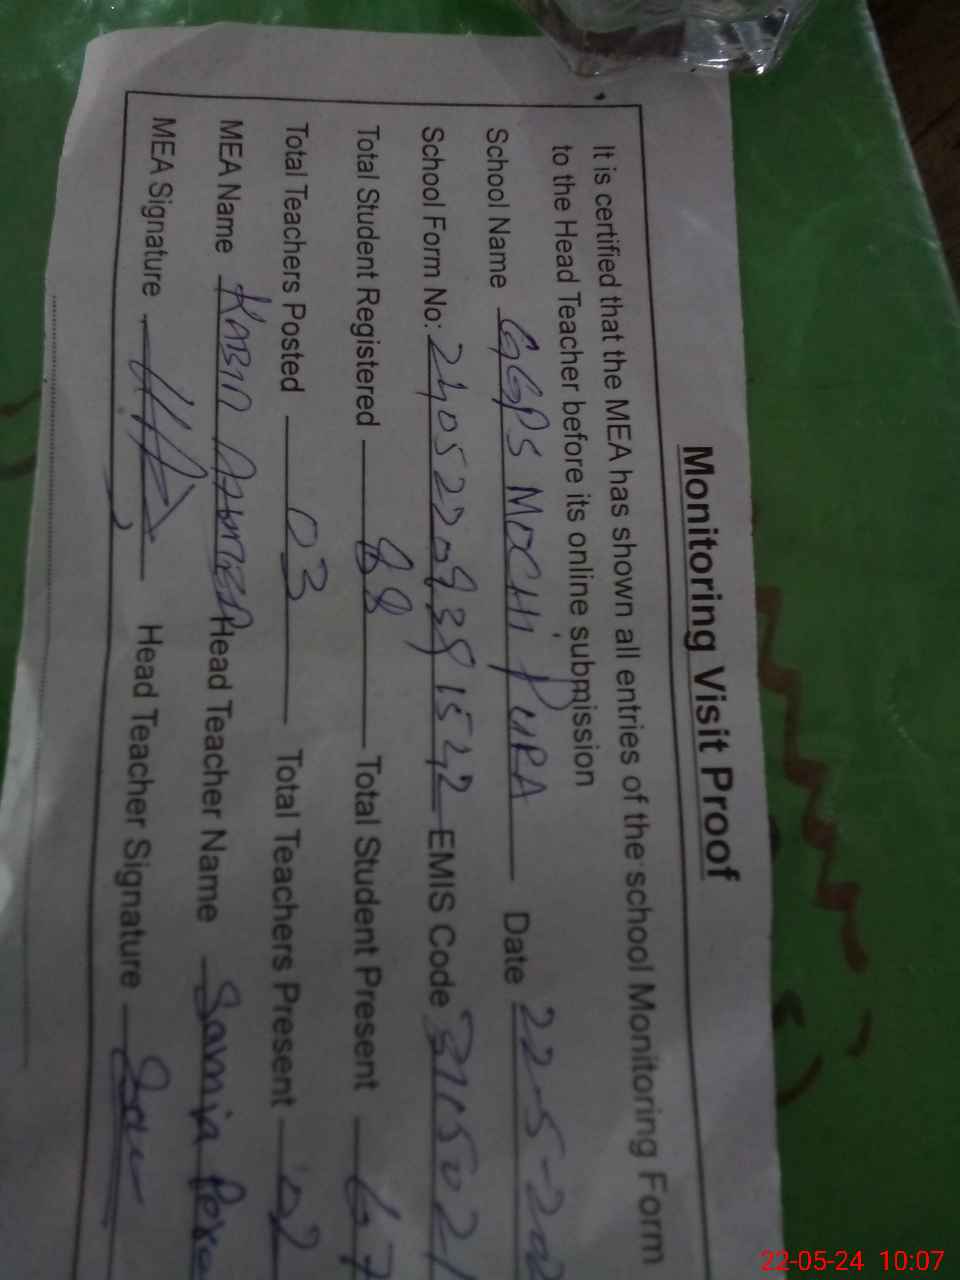 Monitoring Visit Proof
It is certified that the MEA has shown all entries of the school Monitoring Form
to the Head Teacher before its online submission
School Name GGPS MOCHI PURA Date 22-5-202
School Form No: EMIS Code 3715021
Total Student Registered 88 Total Student Present 67
Total Teachers Posted 03 Total Teachers Present 02
MEA Name Head Teacher Name Samia
MEA Signature Head Teacher Signature
22-05-24 10:07